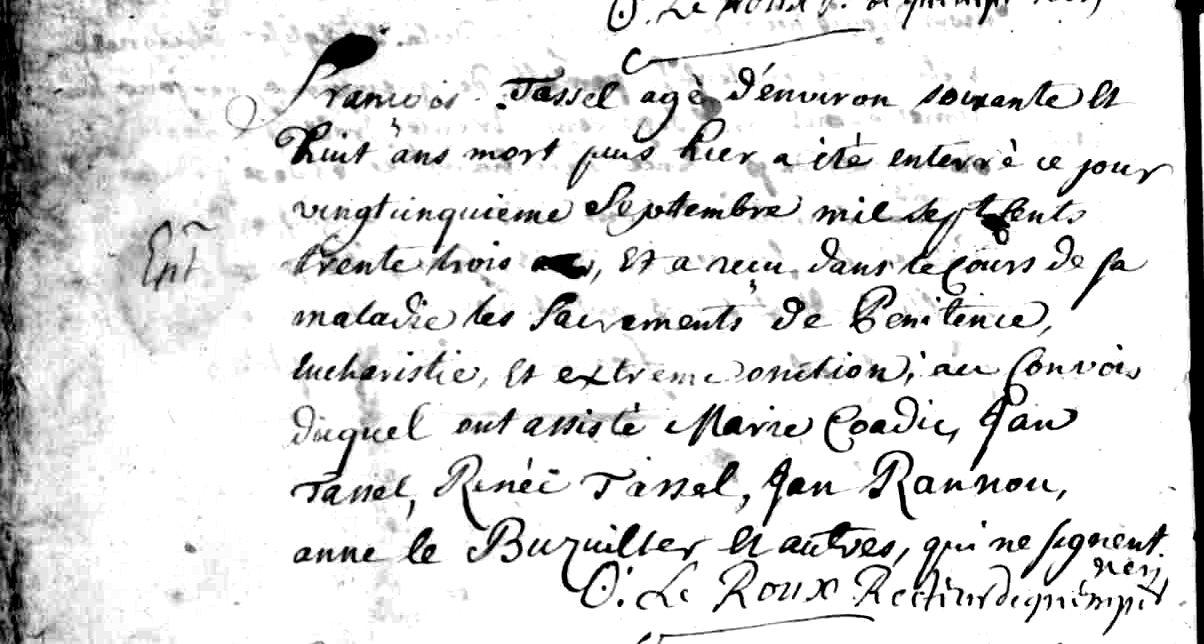 O. Le Roux r. de quimper
François Tassel agè d'énviron soixante et
huit ans mort puis hier a été enterrè ce jour
vingtcinquieme Septembre mil sept cents
Ent
trente trois, et a reçu dans le cours de sa
maladie les Sacrements de Penitence,
eucharistie, et extreme onction; au convois
duquel ont assistè Marie Coadic, Jan
Tassel, Renéé Tassel, Jan Rannou,
anne le Buzuiller et autres, qui ne signent
O. Le Roux Recteur de quimper